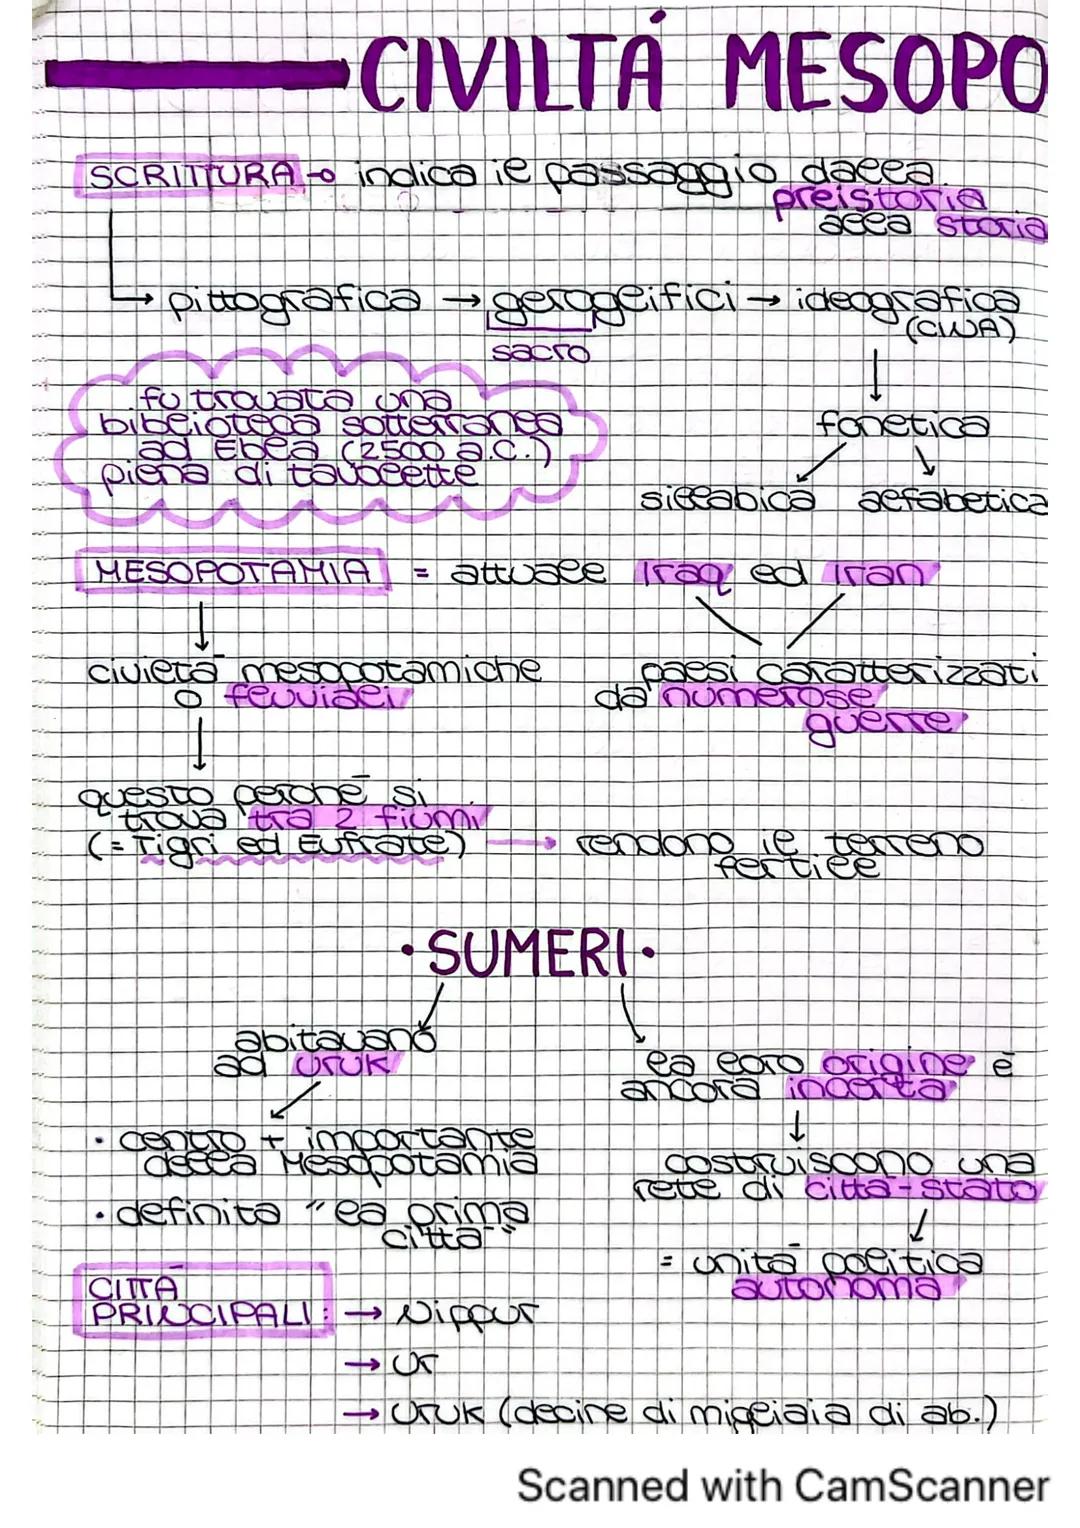 CIVILTÁ MESOPO
SCRITTURA → indica il passaggio dalla
preistoria
alla storia
→ pittografica → geroglifici → ideografica
(CINA)
sacro
fu trovata una
biblioteca sotterranea
ad Ebla (2500 a.C.)
piena di tavolette
fonetica
sillabica alfabetica
MESOPOTAMIA = attuale Iraq ed Iran
civiltà mesopotamiche
o fluviali
paesi caratterizzati
da numerose
guerre
questo perché si
trova tra 2 fiumi
(= Tigri ed Eufrate) → rendono il terreno
fertile
• SUMERI •
abitavano
ad Uruk
la loro origine è
ancora incerta
• centro + importante
della Mesopotamia
• definita "la prima
città"
costruiscono una
rete di città-stato
= unità politica
autonoma
CITTÀ
PRINCIPALI: → Nippur
→ Ur
→ Uruk (decine di migliaia di ab.)
Scanned with CamScanner